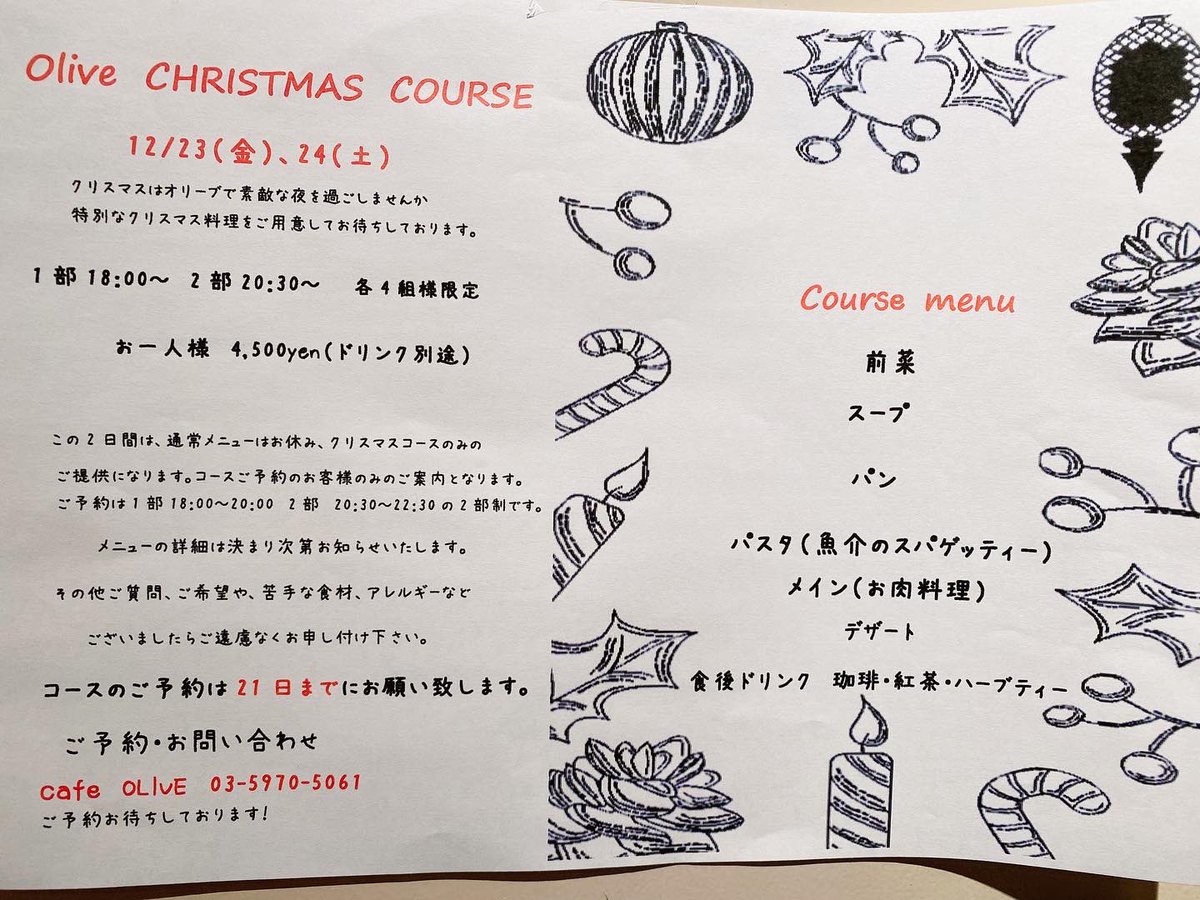 Olive CHRISTMAS COURSE
12/23(金)、24(土)
クリスマスはオリーブで素敵な夜を過ごしませんか
特別なクリスマス料理をご用意してお待ちしております。
1部 18:00～ 2部 20:30～ 各4組様限定
お一人様 4,500yen(ドリンク別途)
この2日間は、通常メニューはお休み、クリスマスコースのみの
ご提供になります。コースご予約のお客様のみのご案内となります。
ご予約は1部 18:00～20:00 2部 20:30～22:30の2部制です。
メニューの詳細は決まり次第お知らせいたします。
その他ご質問、ご希望や、苦手な食材、アレルギーなど
ございましたらご遠慮なくお申し付け下さい。
コースのご予約は21日までにお願い致します。
ご予約・お問い合わせ
cafe OLIVE 03-5970-5061
ご予約お待ちしております!
Course menu
前菜
スープ
パン
パスタ(魚介のスパゲッティー)
メイン(お肉料理)
デザート
食後ドリンク 珈琲・紅茶・ハーブティー